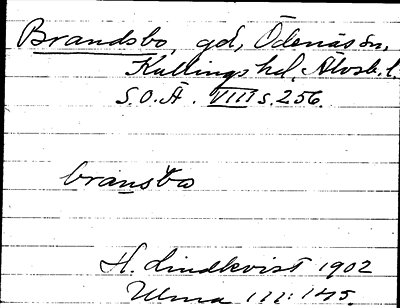 Brandsbo, gd, Ödenäs sn,
Kullings hd. Älvsb. l.
S.O.Ä. VIII s. 256.
bransbo
H. Lindkvist 1902
Ulma 111:145.